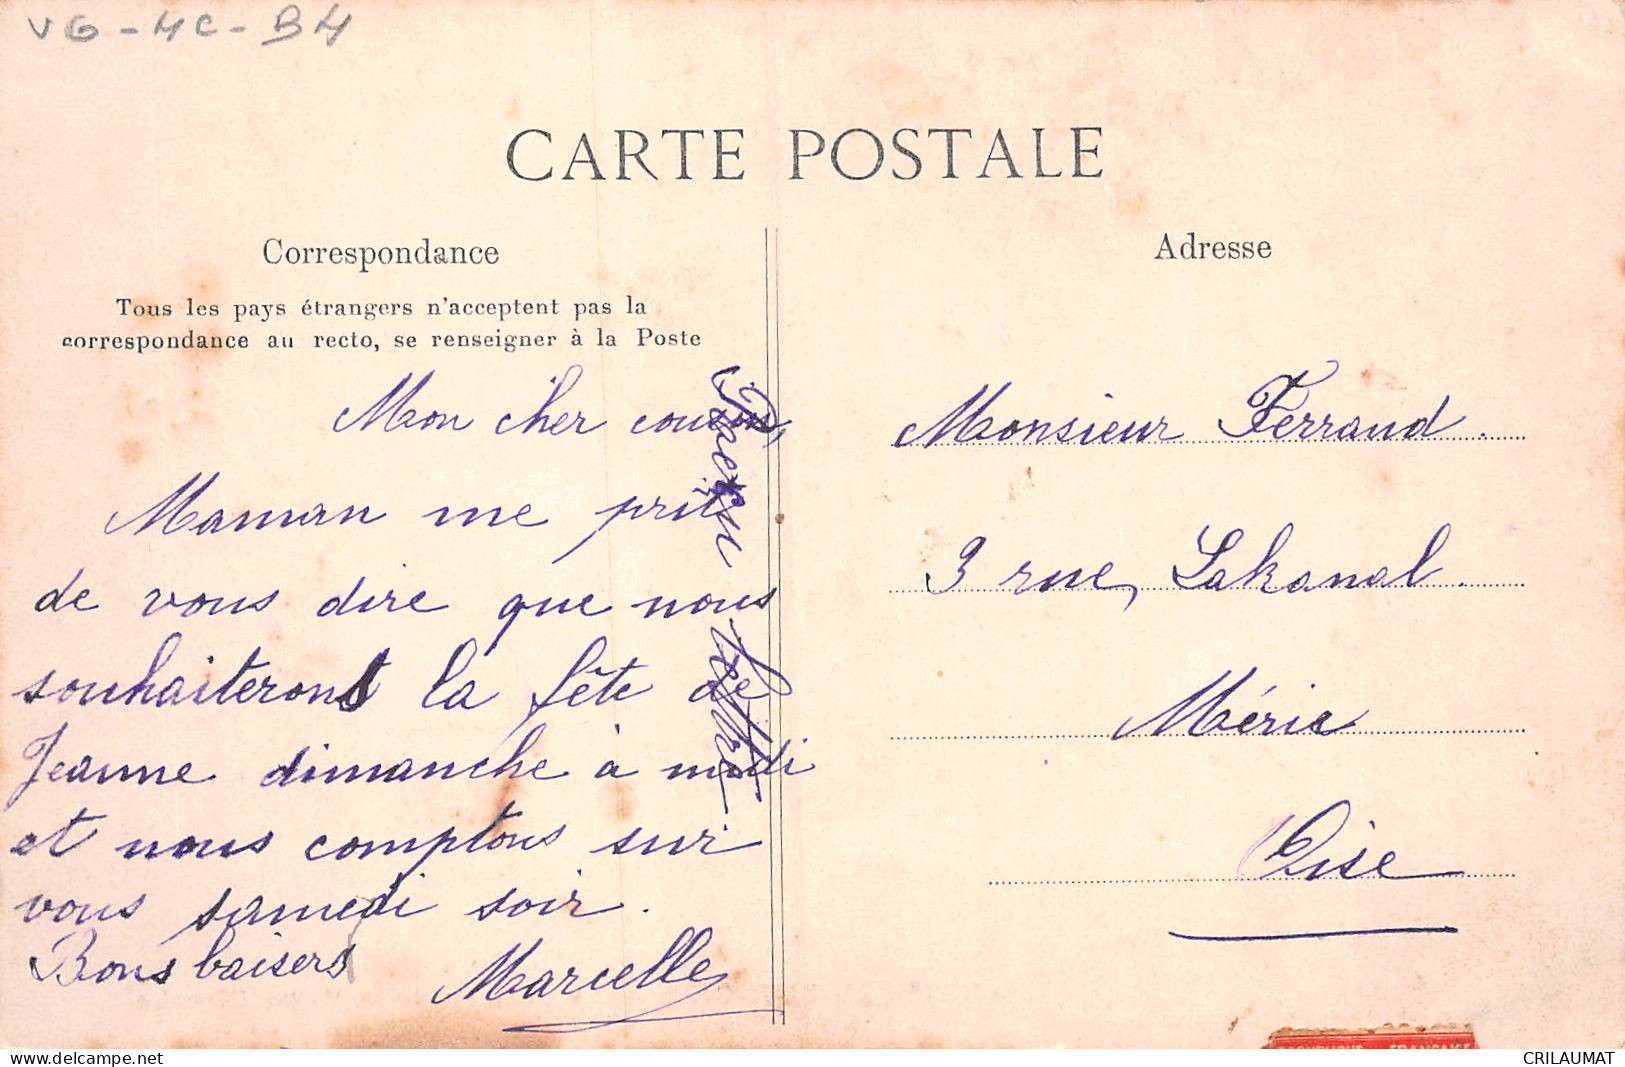 VG-4C-B4
CARTE POSTALE
Correspondance
Tous les pays étrangers n'acceptent pas la
correspondance au recto, se renseigner à la Poste
Mon cher cousin,
Maman me prie
de vous dire que nous
souhaiterons la fête de
Jeanne dimanche à midi
et nous comptons sur
vous samedi soir.
Bons baisers
Marcelle
Adresse
Monsieur Ferrand
3 rue, Lakanal
Méric
Oise
FRANÇAISE
www.delcampe.net
CRILAUMAT